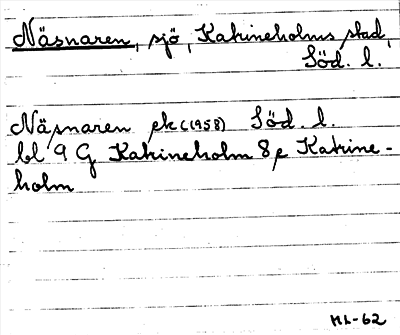 Näsnaren, sjö, Katrineholms stad,
Söd. l.
Näsnaren ek (1958) Söd. l.
bl 9 G Katrineholm 8 e Katrine-
holm
ML-62